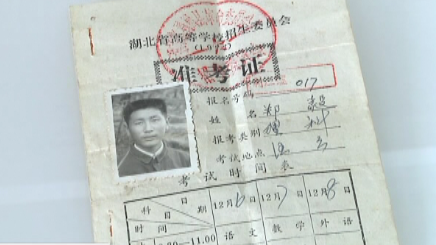 湖北省高等学校招生委员会
准考证
报名号码 017
姓名 郑毅
报考类别 理科
考试地点
考试时间表
科目 日期 时间 12月6日 12月7日 12月8日
8.30—11.00 语文 数学 外语